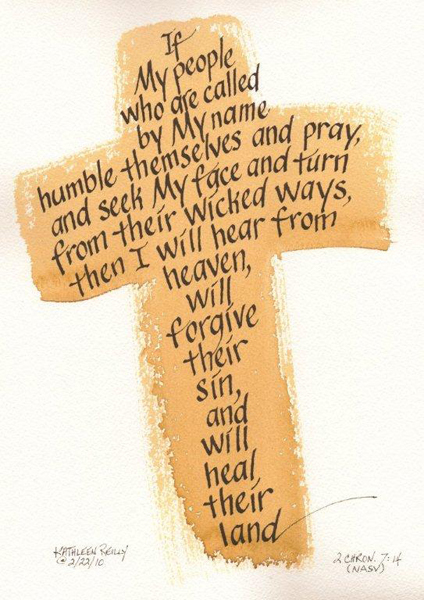 If
My people
who are called
by My name
humble themselves and pray,
and seek My face and turn
from their wicked ways,
then I will hear from
heaven,
will
forgive
their
sin,
and
will
heal
their
land
KATHLEEN REILLY
© 2/22/10
2 CHRON. 7:14
(NASV)